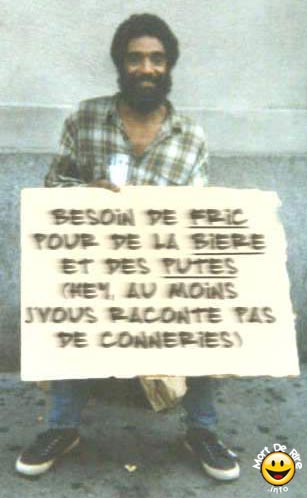 BESOIN DE FRIC
POUR DE LA BIERE
ET DES PUTES
(HEY, AU MOINS
J'VOUS RACONTE PAS
DE CONNERIES)
Mort De Rire
.info